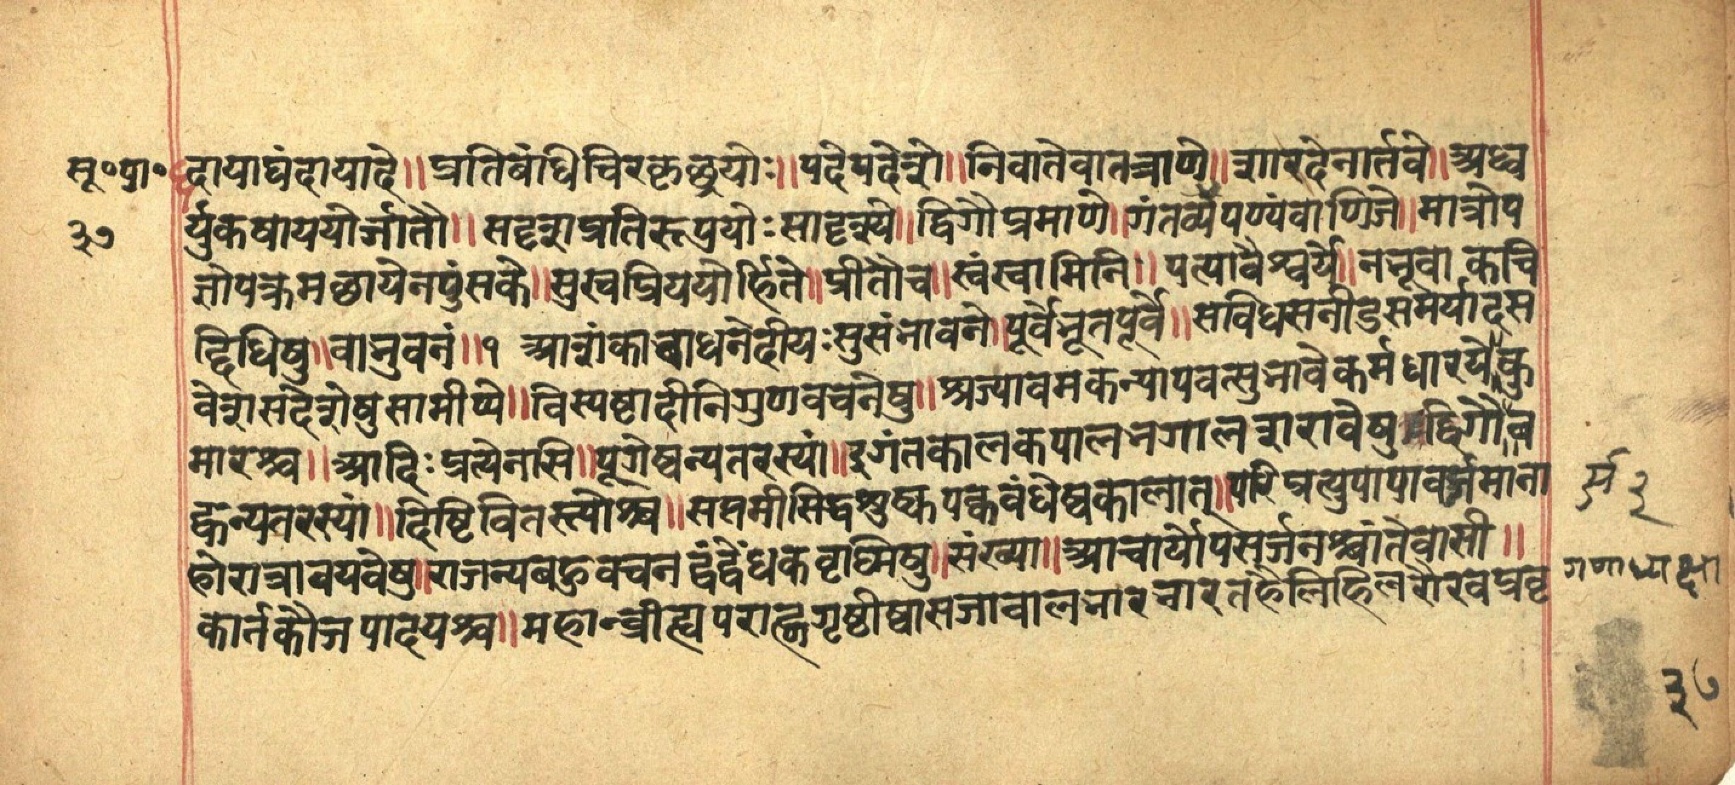 सू॰पा॰ दायाद्यंदायादे॥ प्रतिबंधिचिरकृछ्रयोः॥ पदेपदेशे॥ निवातेवातत्राणे॥ शारदेनार्तवे॥ अध्व
३७ र्युकषाययोर्जातौ॥ सदृशप्रतिरूपयोः सादृश्ये॥ द्विगौप्रमाणे॥ गंतव्यपण्यंवाणिजे॥ मात्रोप
ज्ञोपक्रमछायेनपुंसके॥ सुखप्रिययोर्हिते॥ प्रीतौच॥ स्वंस्वामिनि॥ पत्यावैश्वर्ये॥ नभूवाकचि
द्दिधिषु॥ वाभुवनं॥ १ आशंकाबाधनेदीयःसुसंभावने॥ पूर्वेभूतपूर्वे॥ सविधसनीडसमर्यादस
वेशसदेशेषुसामीप्ये॥ विस्पष्टादीनिगुणवचनेषु॥ श्रज्यावमकन्पापवत्सुभावेकर्मधारये॥ कु
मारश्च॥ आदिः प्रत्येनसि॥ पूगेष्वन्यतरस्यां॥ इगंतकालकपालभगालशरावेषु द्विगौ॥ ब
ह्वन्यतरस्यां॥ दिष्टिवितस्त्योश्च॥ सप्तमीसिद्धशुष्कपक्वबंधेष्वकालात्॥ परिप्रत्युपापावर्ज्यमाना
होरात्रावयवेषु॥ राजन्यबहुवचनद्वंद्वेंधकवृष्णिषु॥ संख्या॥ आचार्योपसर्जनश्चांतेवासी॥
कार्तकौजपादयश्च॥ महान्व्रीह्यपराह्णगृष्टीष्वासजाबालभारभारतहैलिहिलरौरवप्रवृ
३७